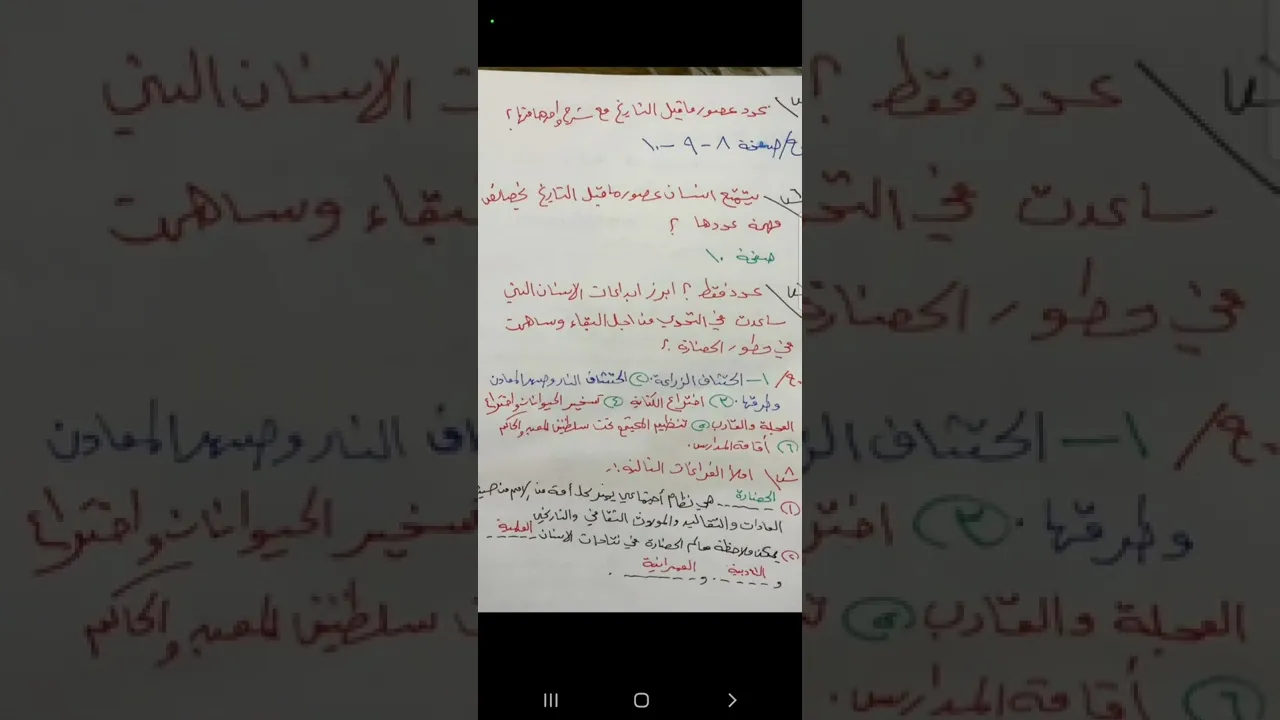 س/ عدد عصور ماقبل التاريخ مع شرح واحدة منها؟
ج/ صفحة ٨ - ٩ - ١٠
س/ يتمتع انسان عصور ماقبل التاريخ بخصائص
مهمة عددها ؟
صفحة ١٠
س/ عدد فقط ؟ ابرز ابداعات الانسان التي
ساعدت في التحدي من اجل البقاء وساهمت
في تطور الحضارة ؟
ج/ ١- اكتشاف الزراعة. ٢ اكتشاف النار وصهر المعادن
وطرقها. ٣ اختراع الكتابة ٤ تسخير الحيوانات واختراع
العجلة والقارب ٥ تنظيم المجتمع تحت سلطتين المعبد والحاكم
٦ أقامة المدارس.
س/ املأ الفراغات التالية :-
١ الحضارة هي نظام أجتماعي يميز كل أمة من الامم من حيث
العادات والتقاليد والموروث الثقافي والتاريخي
٢ يمكن ملاحظة معالم الحضارة في نتاجات الانسان العلمية
و الادبية و العمرانية .